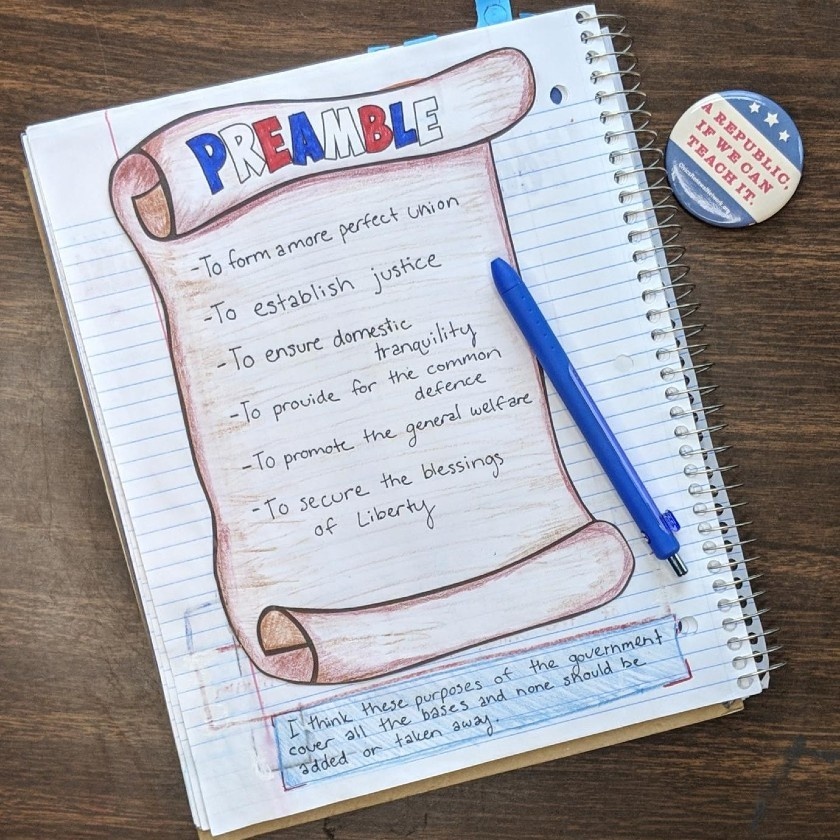 PREAMBLE
-To form a more perfect union
-To establish justice
-To ensure domestic
tranquility
-To provide for the common
defence
-To promote the general welfare
-To secure the blessings
of Liberty
I think these purposes of the government
cover all the bases and none should be
added or taken away.
A REPUBLIC,
IF WE CAN
TEACH IT.